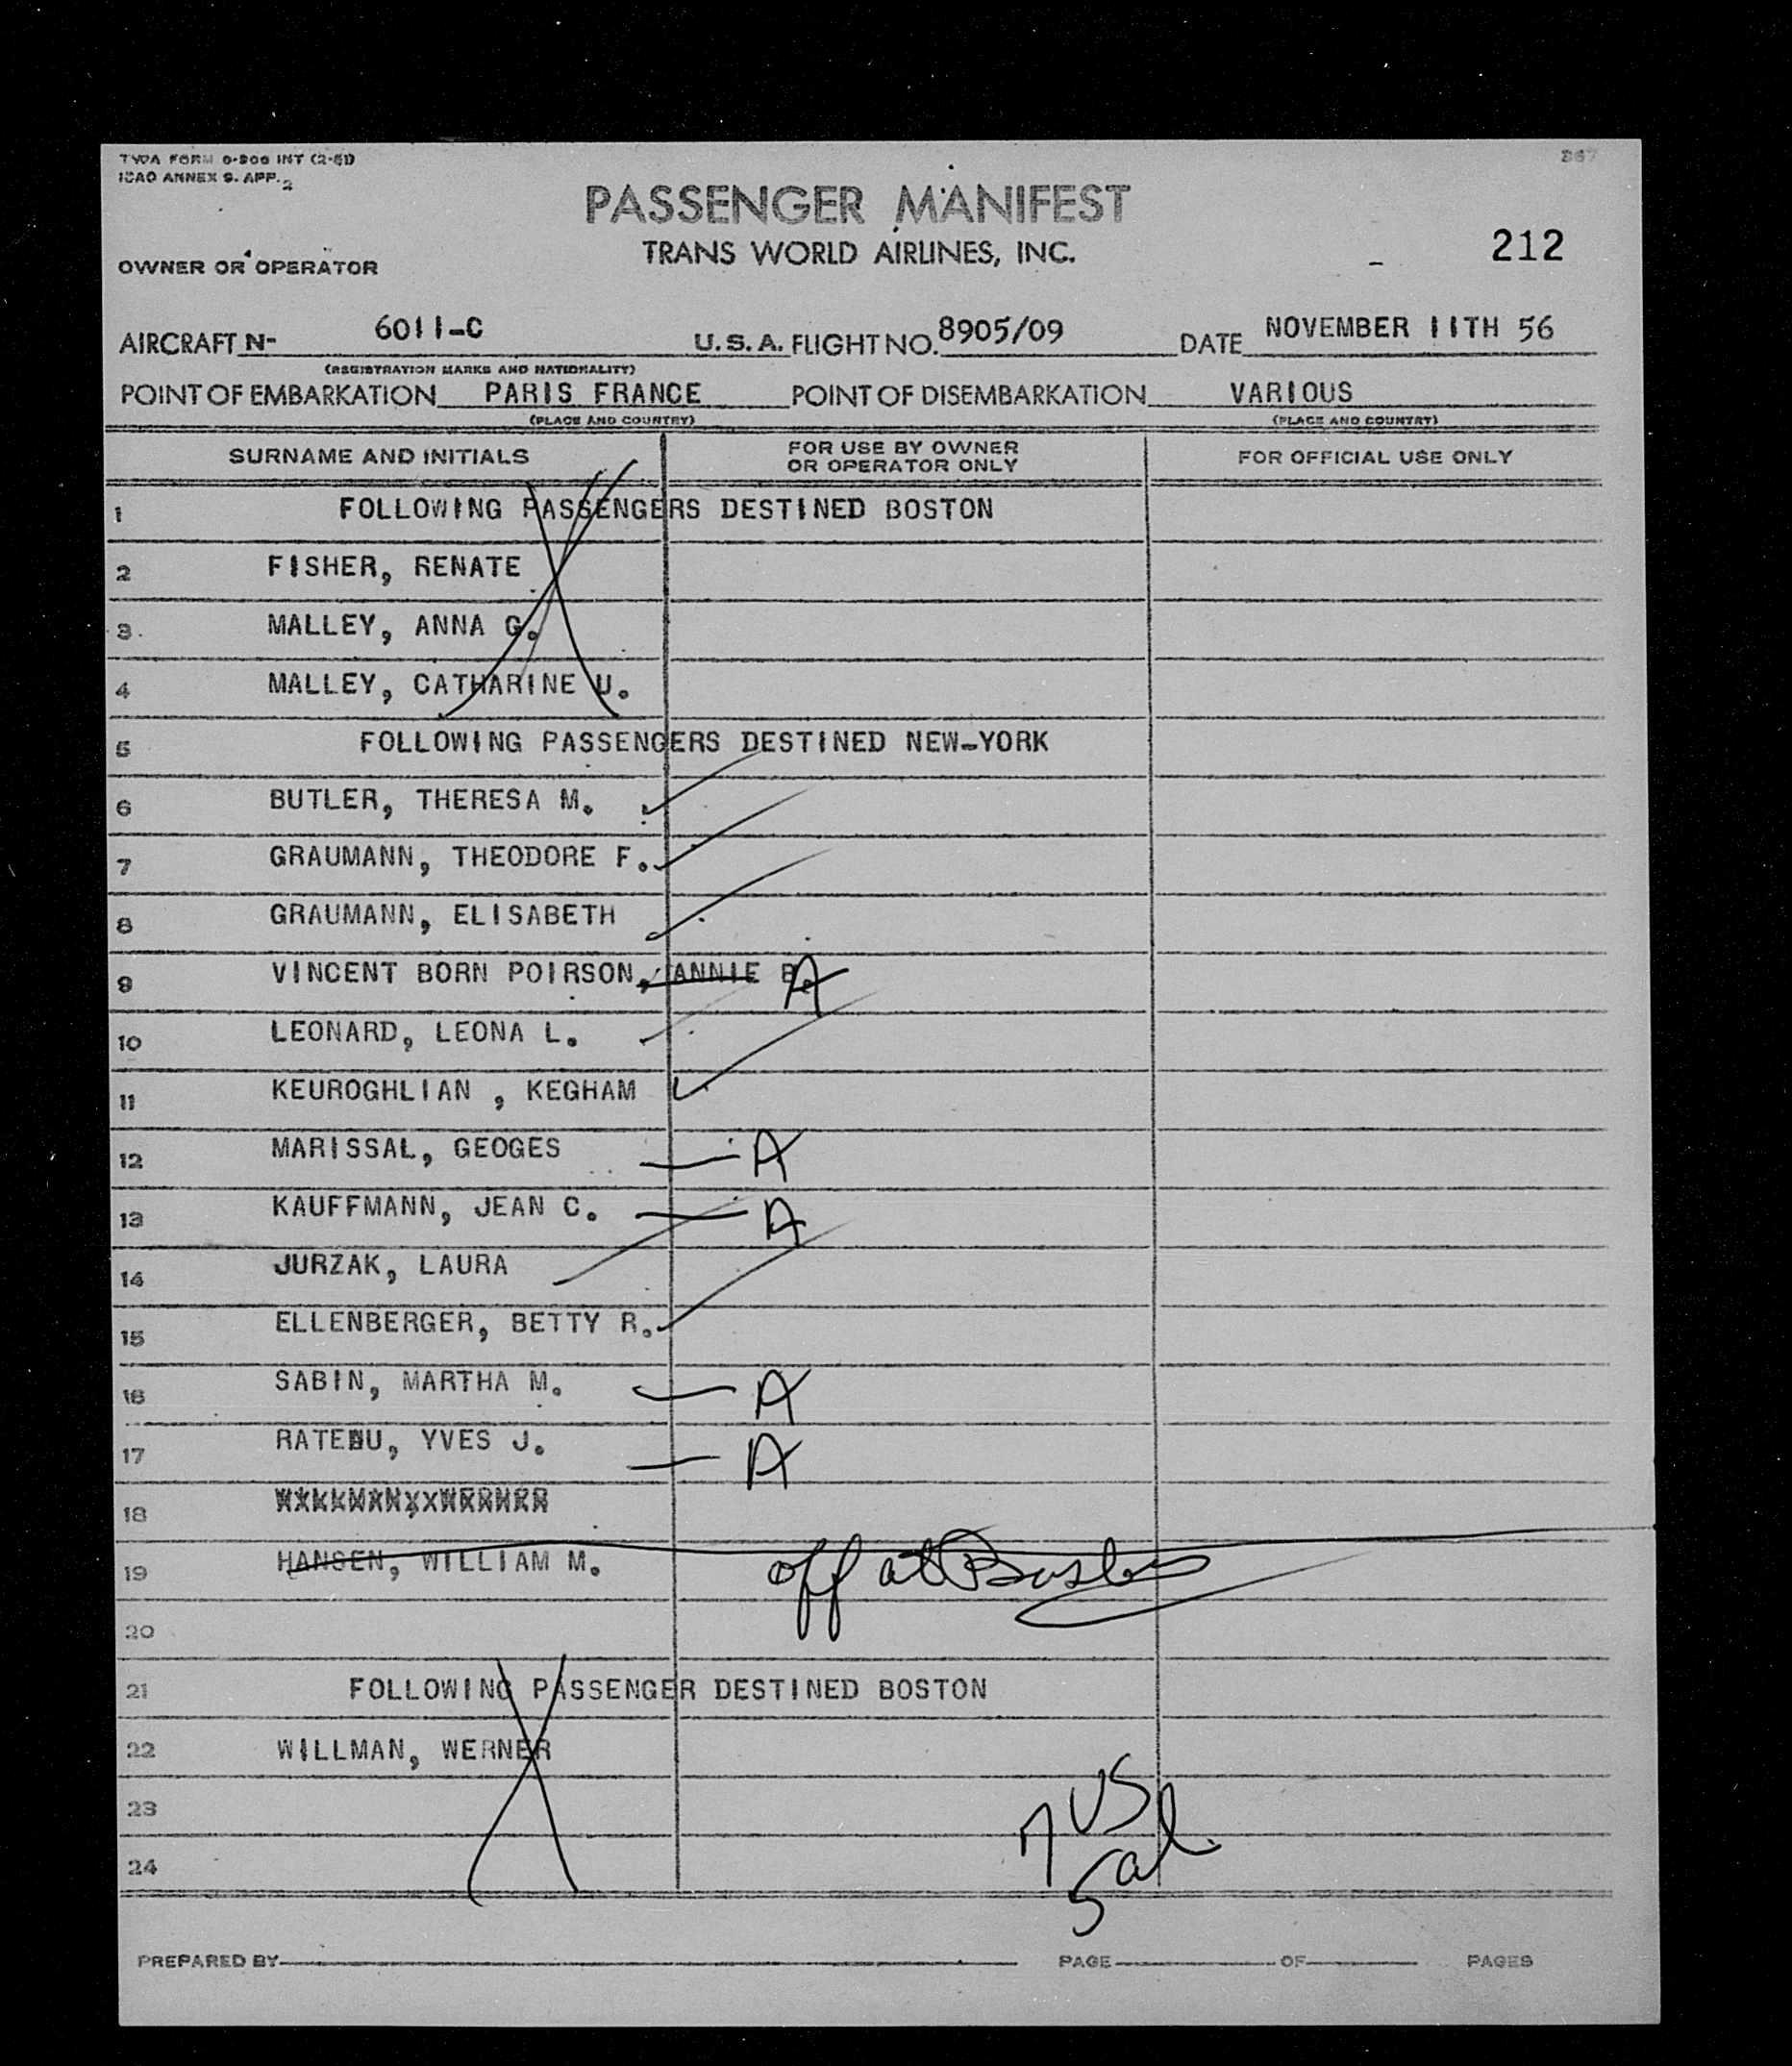 TWA FORM 0-800 INT (2-51)
367
ICAO ANNEX 9. APP. 2
PASSENGER MANIFEST
TRANS WORLD AIRLINES, INC.
212
OWNER OR OPERATOR
AIRCRAFT N- 6011-C U.S.A. FLIGHT NO. 8905/09 DATE NOVEMBER 11TH 56
(REGISTRATION MARKS AND NATIONALITY)
POINT OF EMBARKATION PARIS FRANCE POINT OF DISEMBARKATION VARIOUS
(PLACE AND COUNTRY) (PLACE AND COUNTRY)
SURNAME AND INITIALS FOR USE BY OWNER OR OPERATOR ONLY FOR OFFICIAL USE ONLY
1 FOLLOWING PASSENGERS DESTINED BOSTON
2 FISHER, RENATE
3. MALLEY, ANNA G.
4 MALLEY, CATHARINE U.
5 FOLLOWING PASSENGERS DESTINED NEW-YORK
6 BUTLER, THERESA M.
7 GRAUMANN, THEODORE F.
8 GRAUMANN, ELISABETH
9 VINCENT BORN POIRSON, ANNIE A
10 LEONARD, LEONA L.
11 KEUROGHLIAN , KEGHAM
12 MARISSAL, GEOGES A
13 KAUFFMANN, JEAN C. A
14 JURZAK, LAURA
15 ELLENBERGER, BETTY R.
16 SABIN, MARTHA M. A
17 RATEBU, YVES J. A
18
19 HANSEN, WILLIAM M. off at Boston
20
21 FOLLOWING PASSENGER DESTINED BOSTON
22 WILLMAN, WERNER
23
7 US
24
5 al.
PREPARED BY PAGE OF PAGES